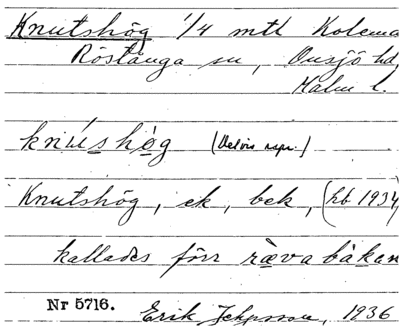 Knutshög 1/4 mtl Kolema
Röstånga sn, Onsjö hd,
Malm l.
knúshög (Delvis repr.)
Knutshög, ek, bek, (hb 1934)
kallades förr ràvabàkan
Nr 5716.
Erik 1936